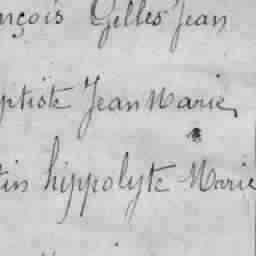 nçois Gilles Jean
ptiste Jean Marie
tin hippolyte Marie